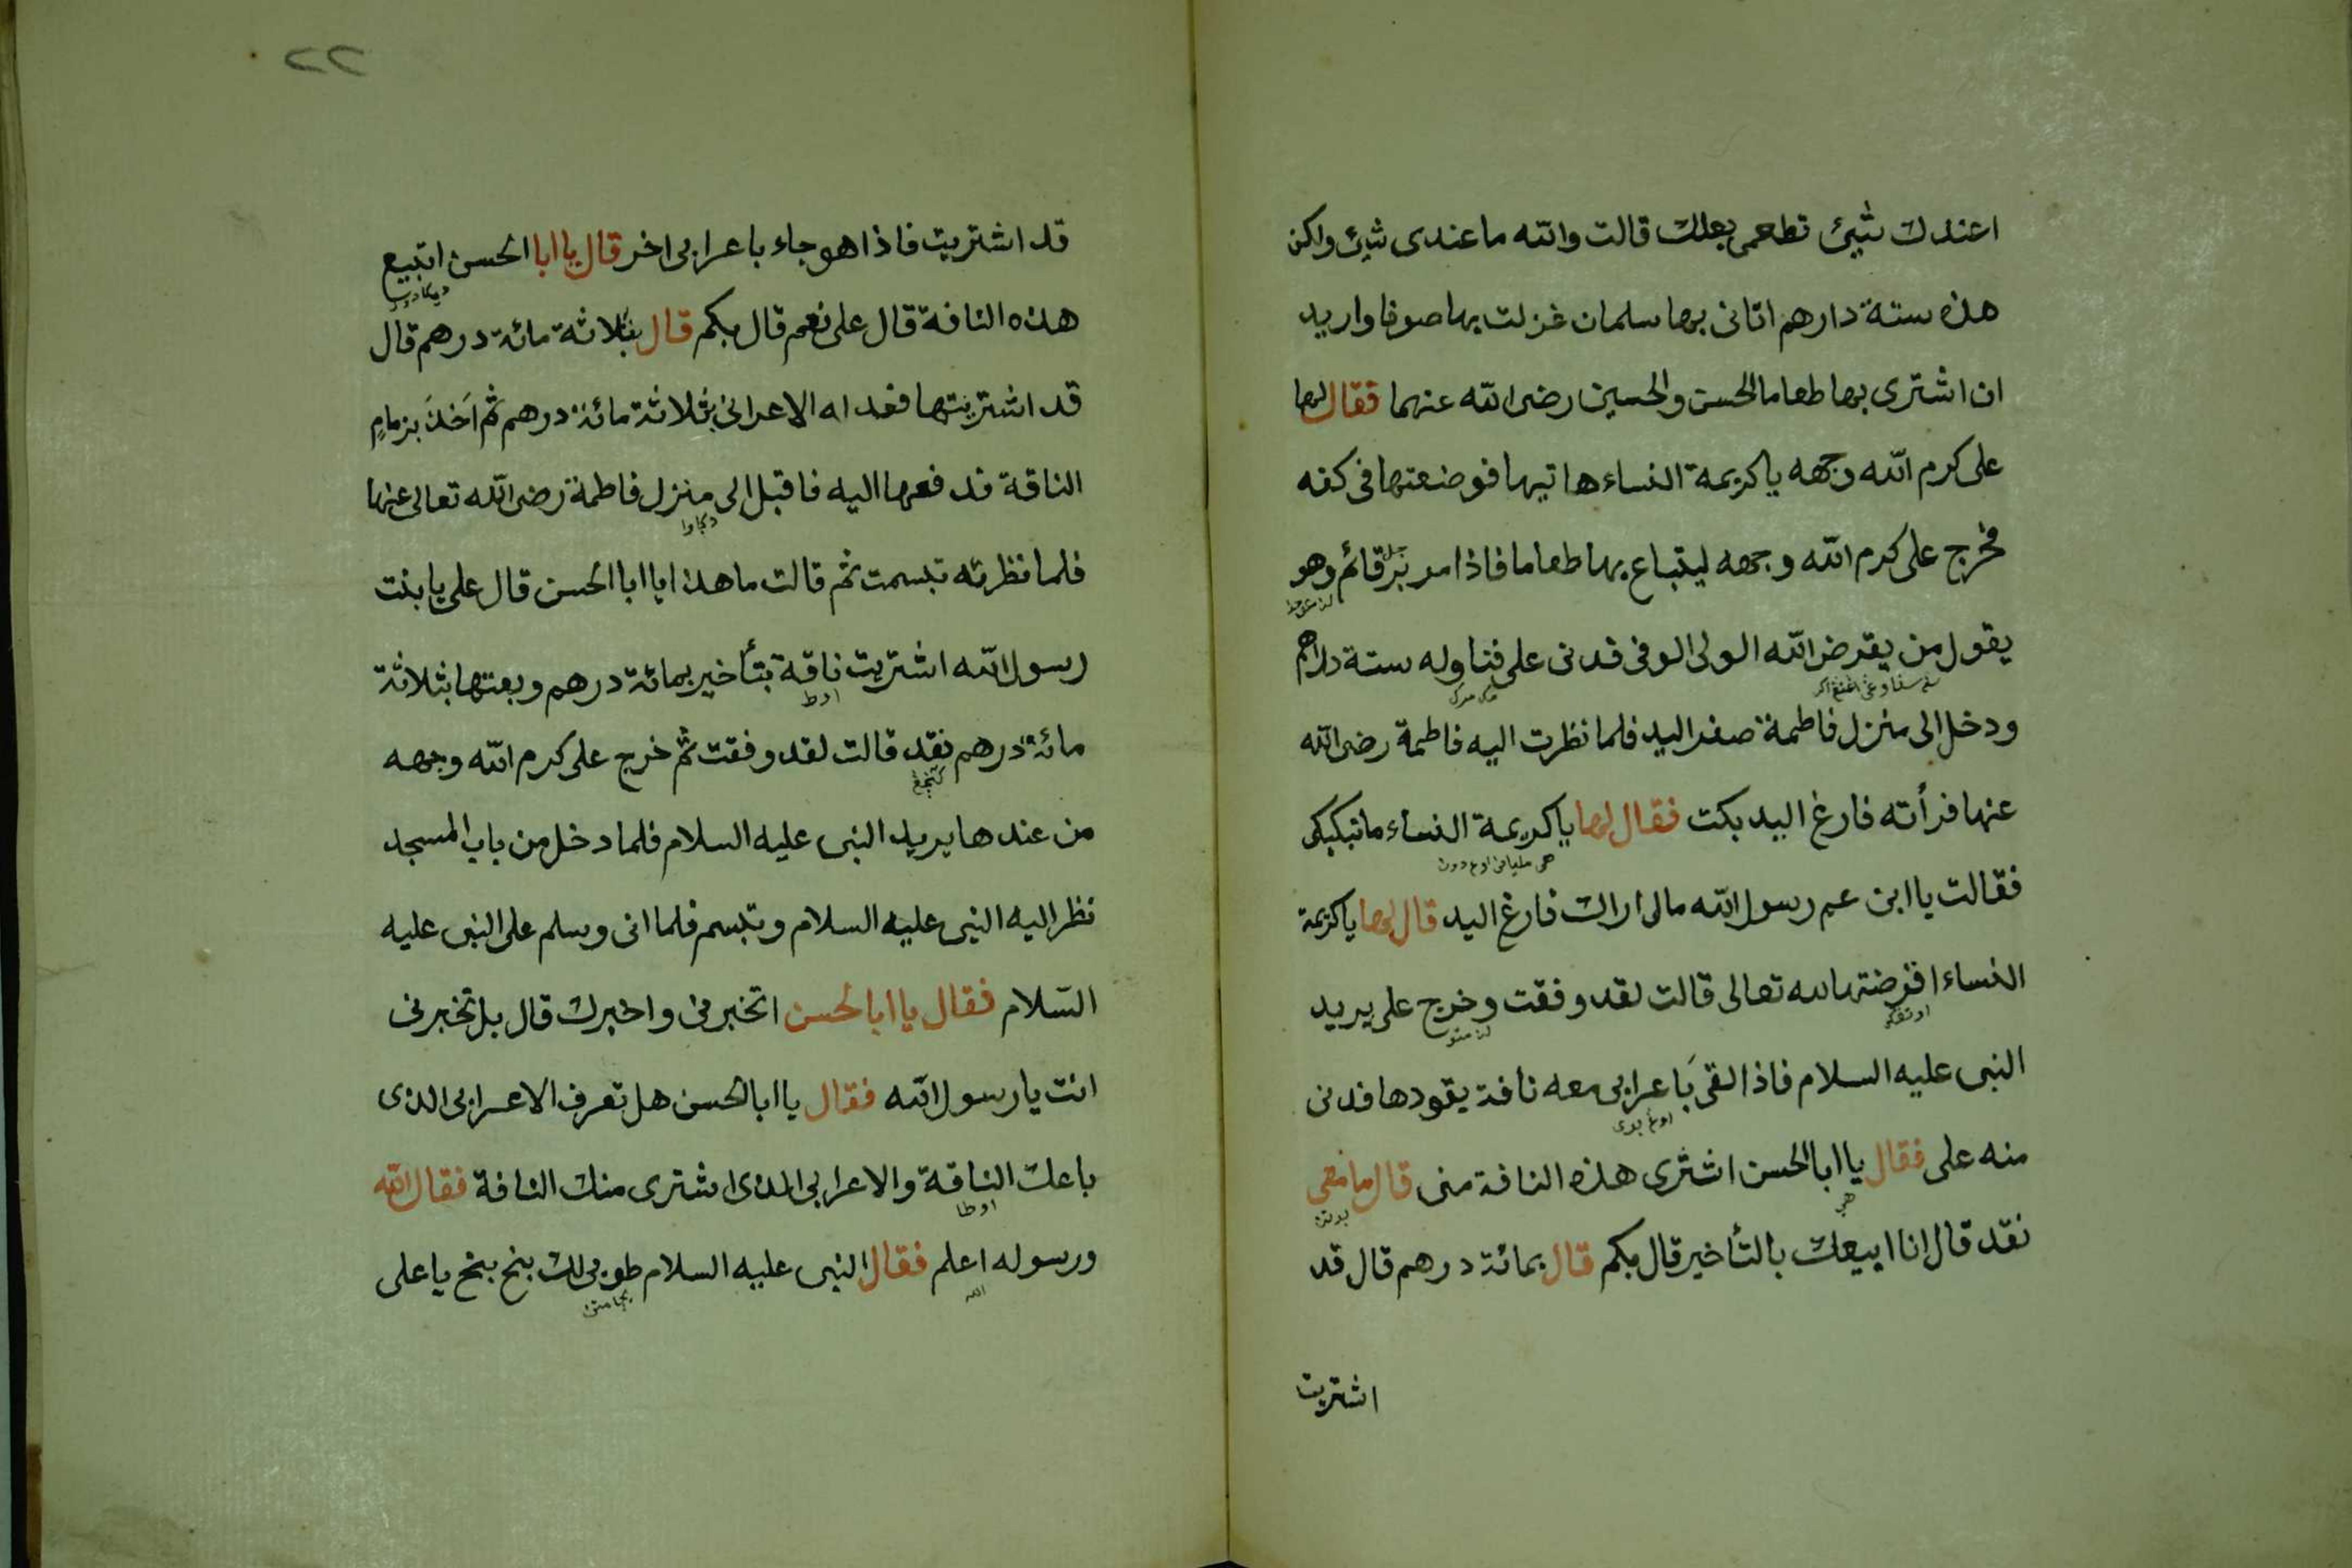 اعندك شيئ تطعمى بعلك قالت والله ما عندى شيئ ولكن
هذه ستة دارهم اتانى بها سلمان غزلت بها صوفا واريد
ان اشترى بها طعاما الحسن والحسين رضى الله عنهما فقال لها
على كرم الله وجهه يا كريمة النساء هاتيها فوضعتها فى كفه
فخرج على كرم الله وجهه ليبتاع بها طعاما فاذا مر برجل قائم وهو
يقول من يقرض الله الولى الوفى فدنى على فناوله ستة دراهم
ودخل الى منزل فاطمة صفر اليد فلما نظرت اليه فاطمة رضى الله
عنها فرأته فارغ اليد بكت فقال لها يا كريمة النساء ما تبكيكى
فقالت يا ابن عم رسول الله مالى اراك فارغ اليد قال لها يا كريمة
النساء اقرضتها لله تعالى قالت لقد وفقت وخرج على يريد
النبى عليه السلام فاذا القى باعرابى معه ناقة يقودها فدنى
منه على فقال يا ابا الحسن اشترى هذه الناقة منى قال ما معى
نقد قال انا ابيعك بالتأخير قال بكم قال بمائة درهم قال قد
اشتريت
٢٢
قد اشتريت فاذا هو جاء باعرابى اخر قال يا ابا الحسن اتبيع
هذه الناقة قال على نعم قال بكم قال بثلاثة مائة درهم قال
قد اشتريتها فعد له الاعرابى بثلاثة مائة درهم ثم اَخَذَ بزمامِ
الناقة فدفعها اليه فاقبل الى منزل فاطمة رضى الله تعالى عنها
فلما نظرته تبسمت ثم قالت ما هذا يا ابا الحسن قال على يا بنت
رسول الله اشتريت ناقة بتأخير بمائة درهم وبعتها بثلاثة
مائة درهم نقد قالت لقد وفقت ثم خرج على كرم الله وجهه
من عندها يريد النبى عليه السلام فلما دخل من باب المسجد
نظر اليه النبى عليه السلام وتبسم فلما اتى وسلم على النبى عليه
السّلام فقال يا ابا الحسن اتخبرنى واخبرك قال بل تخبرنى
انت يا رسول الله فقال يا ابا الحسن هل تعرف الاعرابى الذى
باعك الناقة والاعرابى الذى اشترى منك الناقة فقال الله
ورسوله اعلم فقال النبى عليه السلام طوبى لك بخ بخ يا على